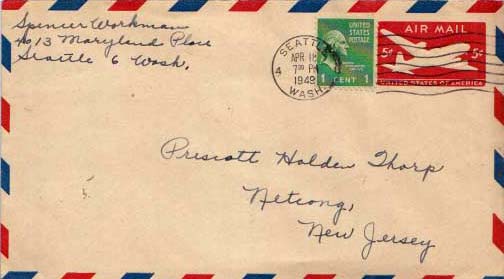 Spencer Workman
4013 Maryland Place
Seattle 6 Wash.
SEATTLE
APR 18
7 30 PM
1949
WASH.
4
UNITED
STATES
POSTAGE
1 CENT 1
AIR MAIL
5¢ 5¢
UNITED STATES OF AMERICA
Prescott Holden Thorp
Netcong,
New Jersey